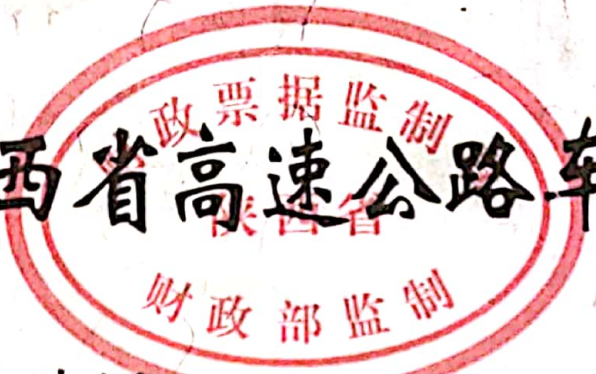 政票据监制
西省高速公路车
陕西省
财政部监制